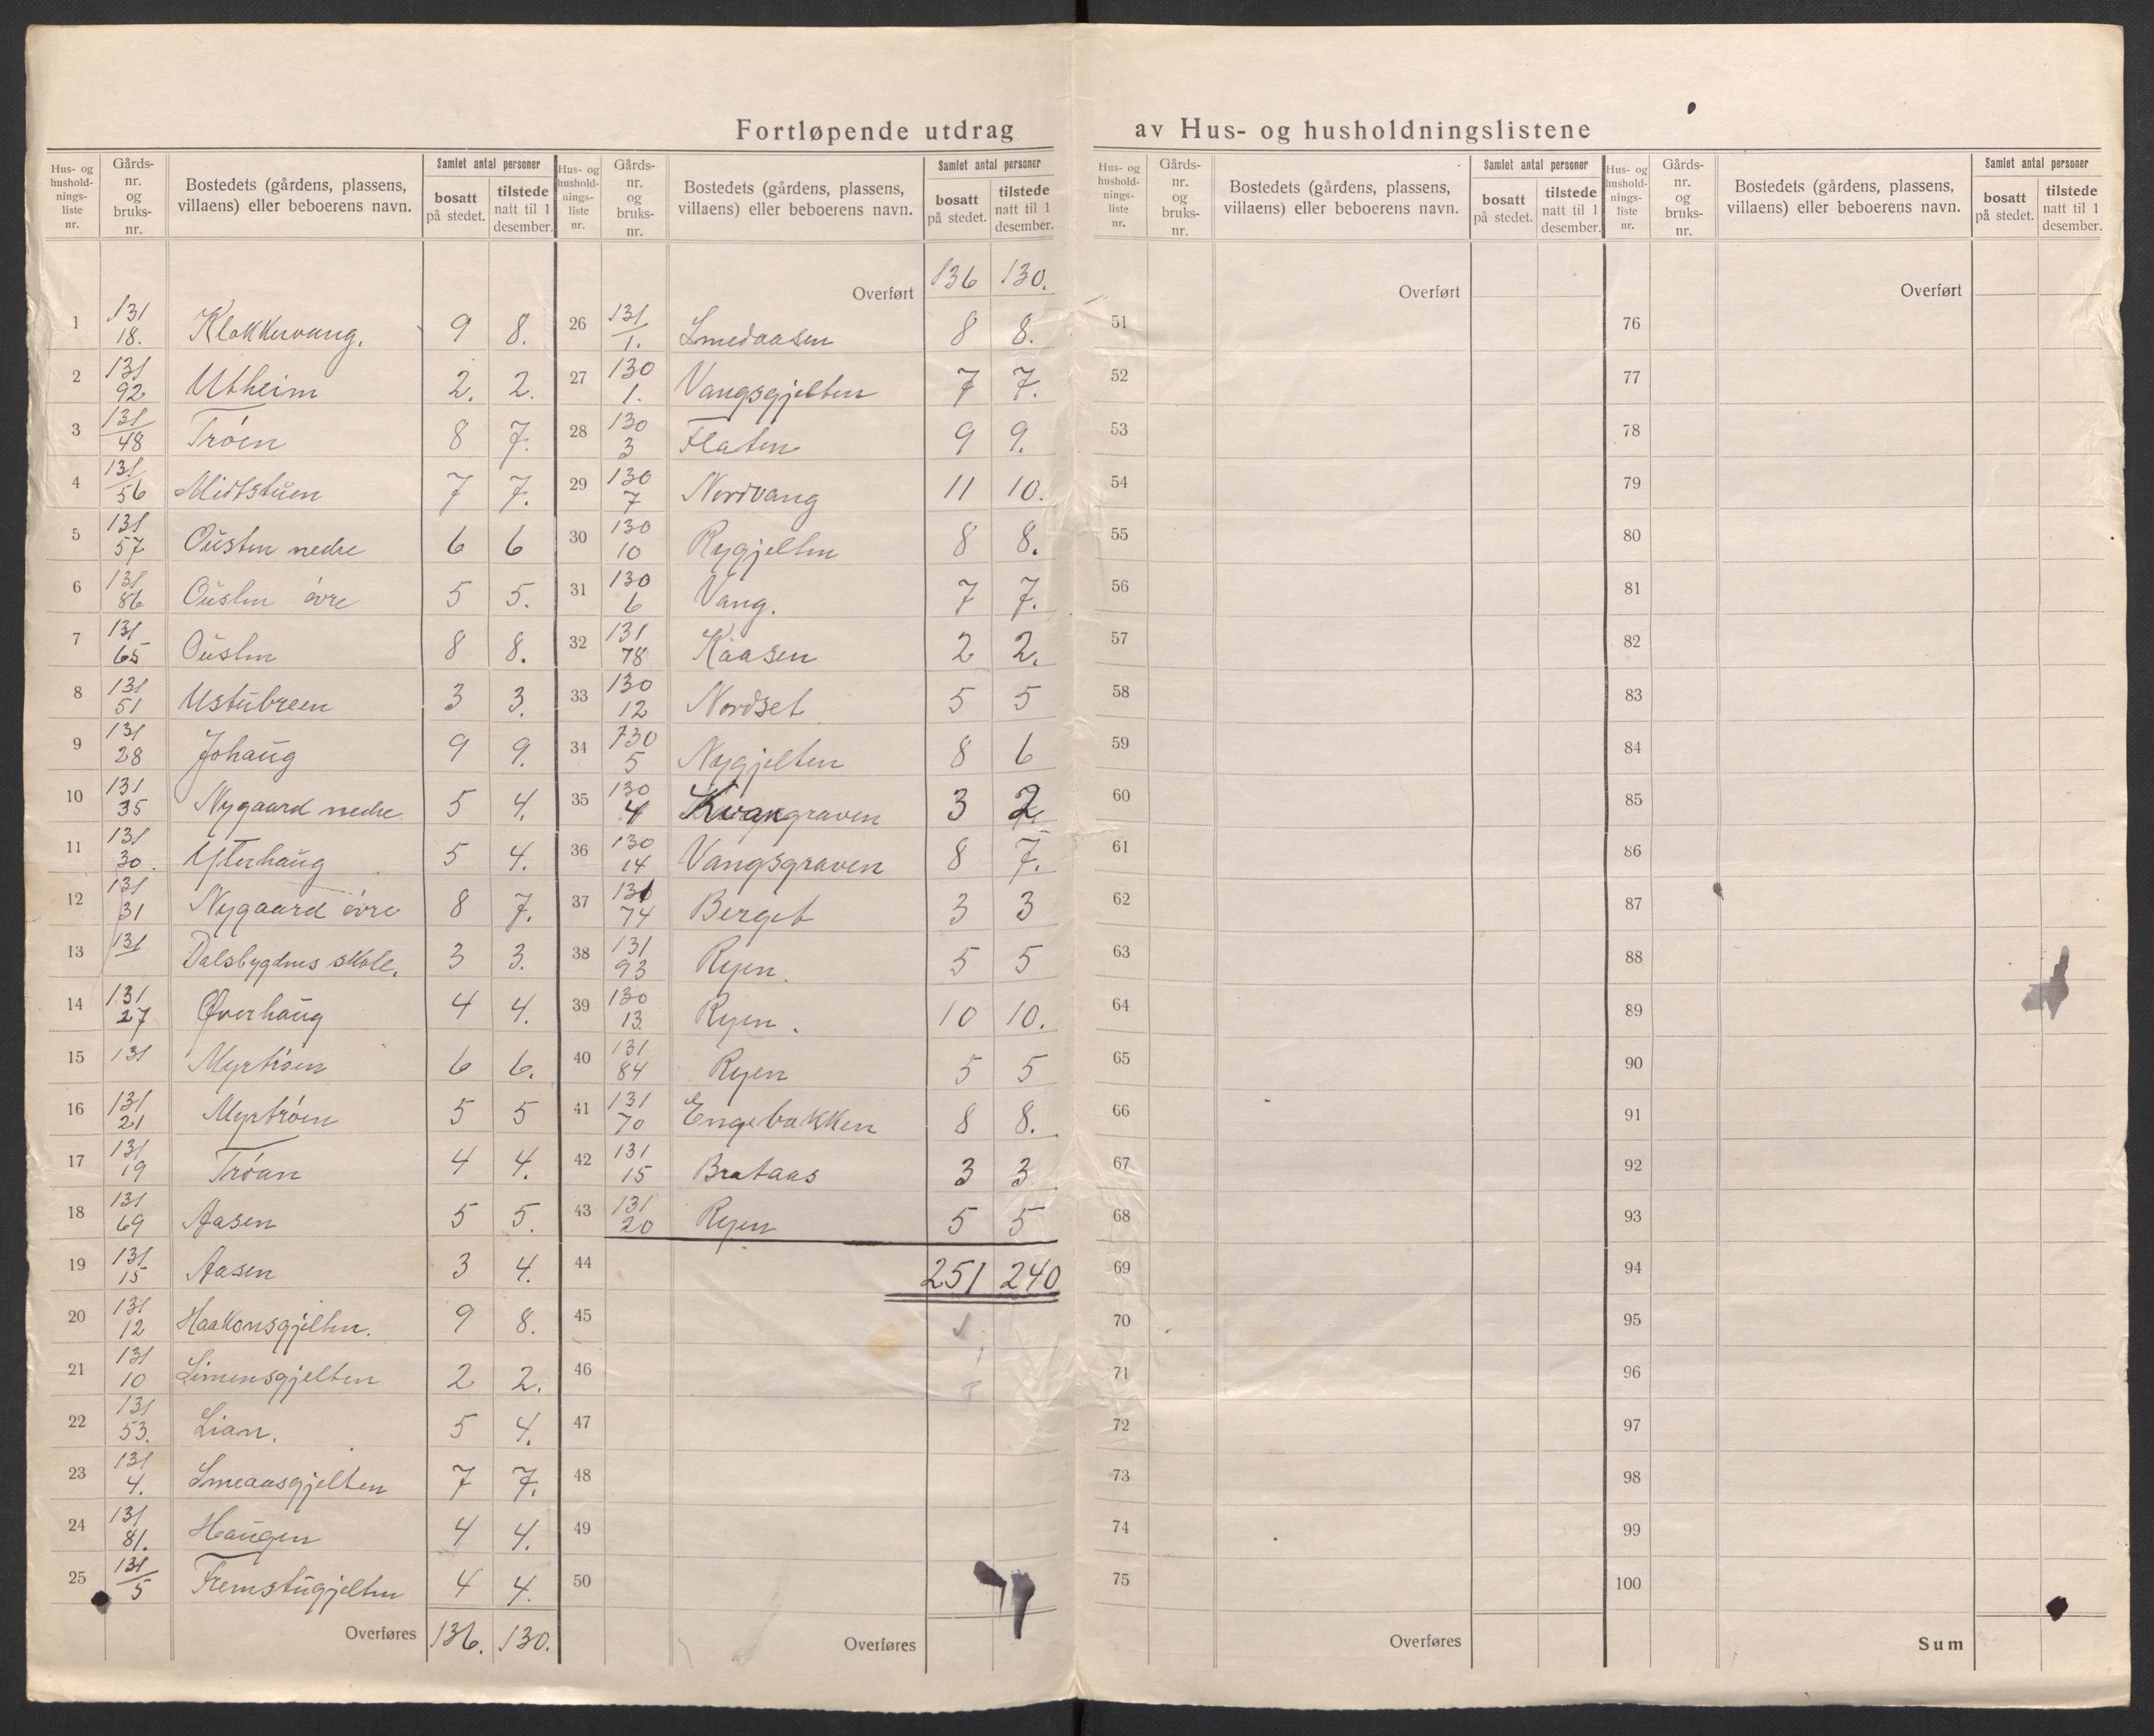 Fortløpende utdrag av Hus- og husholdningslistene
Hus- og husholdningsliste nr. Gårdsnr. og bruksnr. Bostedets (gårdens, plassens, villaens) eller beboerens navn. Samlet antal personer bosatt på stedet. tilstede natt til 1 desember.
1 131 18. Klokkervang. 9 8.
2 131 92 Utheim 2. 2.
3 131/48 Trøen 8 7.
4 131/56 Midtstuen 7 7.
5 131 57 Ousten nedre 6 6
6 131 86 Ousten øvre 5 5.
7 131 65 Ousten 8 8.
8 131 51 Ustubreen 3 3.
9 131 28 Johaug 9 9.
10 131 35 Nygaard nedre 5 4.
11 131 30. Ytterhaug 5 4.
12 131 31 Nygaard øvre 8 7.
13 131 Dalsbygdens skole. 3 3.
14 131 27 Øverhaug 4 4.
15 131 Myrtrøen 6 6.
16 131 21 Myrtrøen 5 5
17 131 19 Trøan 4 4.
18 131 69 Aasen 5 5.
19 131 15 Aasen 3 4.
20 131 12 Haakonsgjelten. 9 8.
21 131 10 Simensgjelten 2 2.
22 131 53. Lian. 5 4.
23 131 4. Smeaasgjelten 7 7.
24 131 81. Haugen 4 4.
25 131/5 Fremstugjelten 4 4.
Overføres 136. 130.
Hus- og husholdningsliste nr. Gårdsnr. og bruksnr. Bostedets (gårdens, plassens, villaens) eller beboerens navn. Samlet antal personer bosatt på stedet. tilstede natt til 1 desember.
Overført 136 130.
26 131/1. Smedaasen 8 8.
27 130 1. Vangsgjelten 7 7.
28 130 3 Flaten 9 9.
29 130 7 Nordvang 11 10.
30 130 10 Rygjelten 8 8.
31 130 6 Vang. 7 7.
32 131 78 Kaasen 2 2.
33 130 12 Nordset 5 5
34 130 5 Nygjelten 8 6
35 130 4 Kvangraven 3 2
36 130 14 Vangsgraven 8 7.
37 131 74 Berget 3 3
38 131 93 Ryen. 5 5
39 130 13. Ryen. 10 10.
40 131 84 Ryen 5 5
41 131 70 Engebakken 8 8.
42 131 15 Brataas 3 3
43 131 20 Ryen 5 5
44 251 240
45
46
47
48
49
50
Overføres
Hus- og husholdningsliste nr. Gårdsnr. og bruksnr. Bostedets (gårdens, plassens, villaens) eller beboerens navn. Samlet antal personer bosatt på stedet. tilstede natt til 1 desember.
Overført
51
52
53
54
55
56
57
58
59
60
61
62
63
64
65
66
67
68
69
70
71
72
73
74
75
Overføres
Hus- og husholdningsliste nr. Gårdsnr. og bruksnr. Bostedets (gårdens, plassens, villaens) eller beboerens navn. Samlet antal personer bosatt på stedet. tilstede natt til 1 desember.
Overført
76
77
78
79
80
81
82
83
84
85
86
87
88
89
90
91
92
93
94
95
96
97
98
99
100
Sum